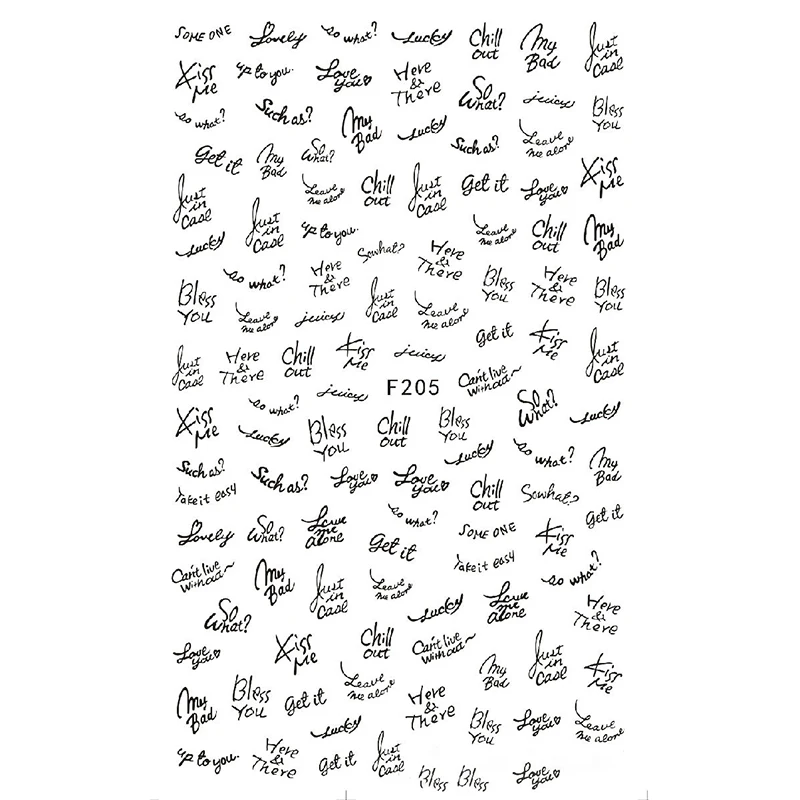 SOME ONE
Lovely
so what?
Lucky
Chill
out
My
Bad
Just
in
Case
Kiss
Me
up to you.
Love
you
Here
&
There
So
What?
juicy
Bless
You
so what?
Such as?
My
Bad
Lucky
Such as?
Leave
me alone
Get it
My
Bad
So
What?
Leave
me alone
Chill
out
Just
in
Case
Get it
Love
you
Kiss
Me
Just
in
Case
Just
in
Case
up to you.
Leave
me alone
Chill
out
My
Bad
Lucky
so what?
Here
&
There
Sowhat?
Here
&
There
Bless
You
Here
&
There
Bless
You
Bless
You
Leave
me alone
juicy
Just
in
Case
Leave
me alone
Get it
Kiss
Me
Just
in
Case
Just
in
Case
Here
&
There
Chill
out
Kiss
Me
juicy
juicy
F205
Can't live
without~
So
What?
Lucky
Kiss
Me
so what?
Lucky
Bless
You
Chill
out
Bless
You
Lucky
so what?
My
Bad
Such as?
Such as?
Love
you
Love
you
Chill
out
Sowhat?
Take it easy
Get it
Lovely
So
What?
Leave
me
alone
so what?
Get it
SOME ONE
Kiss
Me
Take it easy
Can't live
without~
My
Bad
Just
in
Case
Leave
me alone
so what?
Lucky
Leave
me
alone
Here
&
There
So
What?
Love
you
Kiss
Me
Chill
out
Can't live
without~
My
Bad
Just
in
Case
Kiss
Me
My
Bad
Bless
You
Get it
Leave
me alone
Here
&
There
Bless
You
Love
you
Leave
me alone
Lucky
up to you.
Here
&
There
Get it
Just
in
Case
Bless
Bless
Love
you